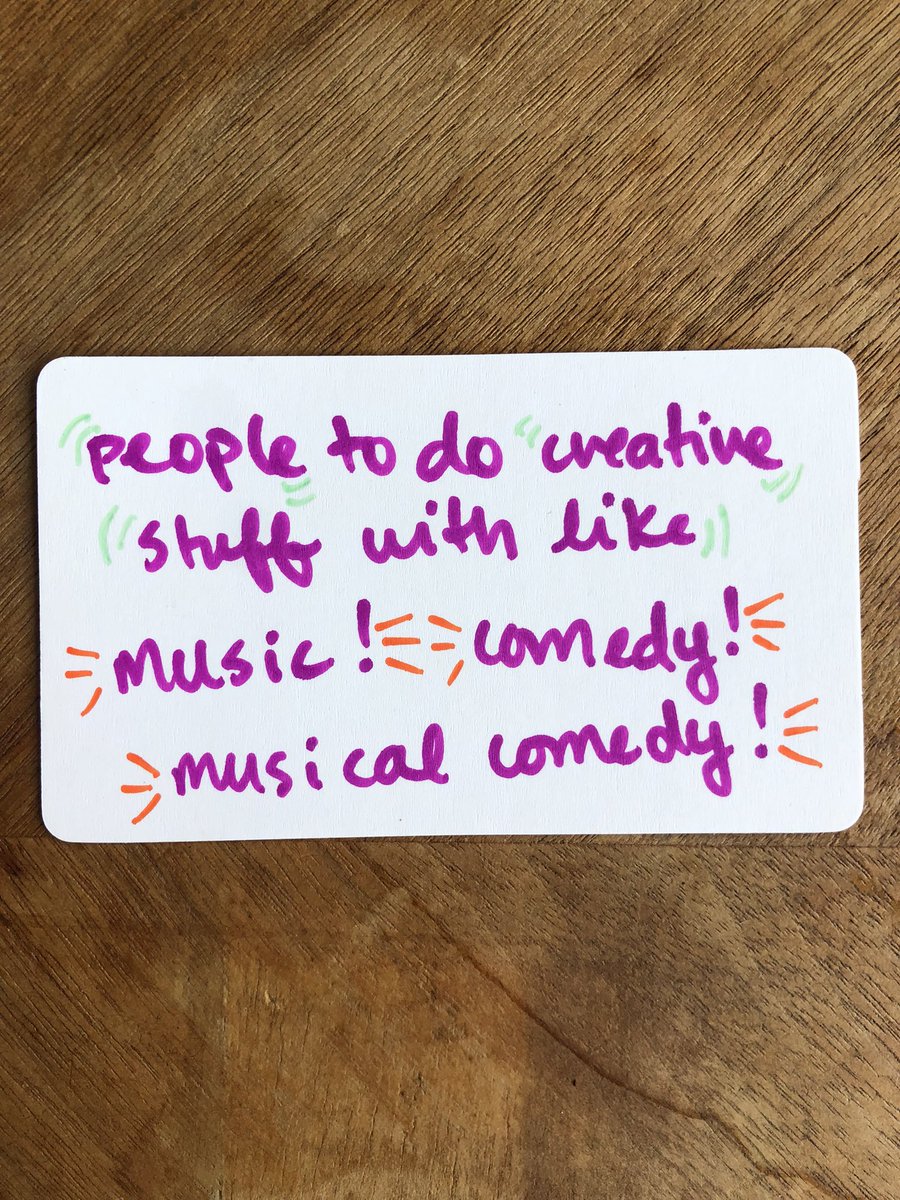 people to do creative
stuff with like
music! comedy!
musical comedy!